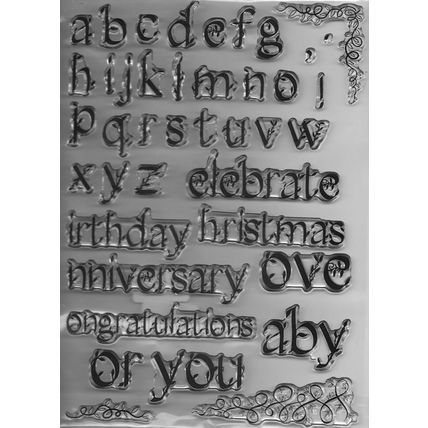 abcdefg
hijklmno
pqrstuvw
xyz celebrate
irthday hristmas
nniversary ove
ongratulations aby
or you